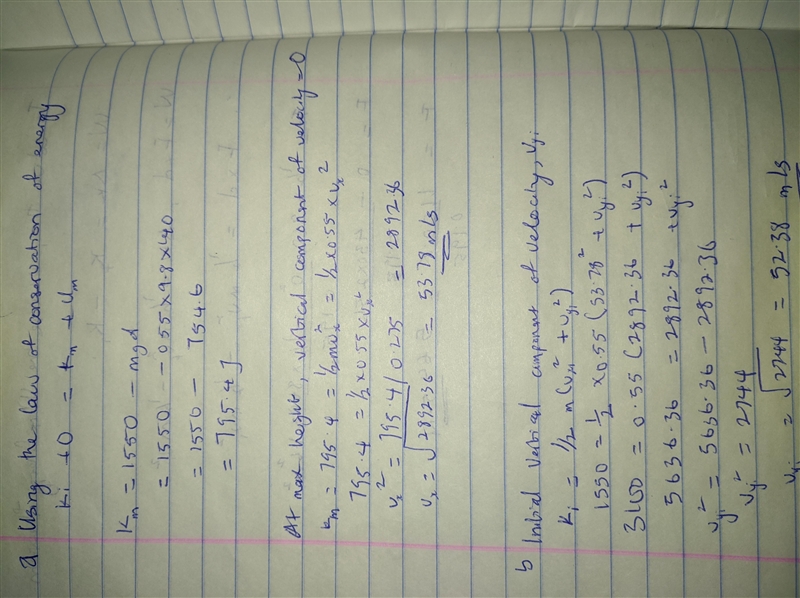 a Using the law of conservation of energy
Ki + 0 = Km + Um
Km = 1550 - mgd
= 1550 - 0.55 x 9.8 x 140
= 1550 - 754.6
= 795.4 J
At max height, vertical component of velocity = 0
Km = 795.4 = 1/2 mvx² = 1/2 x 0.55 x vx²
795.4 = 1/2 x 0.55 x vx²
vx² = 795.4 / 0.275 = 2892.36
vx = √2892.36 = 53.78 m/s
b Initial vertical component of velocity, vyi
Ki = 1/2 m (vxi² + vyi²)
1550 = 1/2 x 0.55 (53.78² + vyi²)
3100 = 0.55 (2892.36 + vyi²)
5636.36 = 2892.36 + vyi²
vyi² = 5636.36 - 2892.36
vyi² = 2744
vyi = √2744 = 52.38 m/s